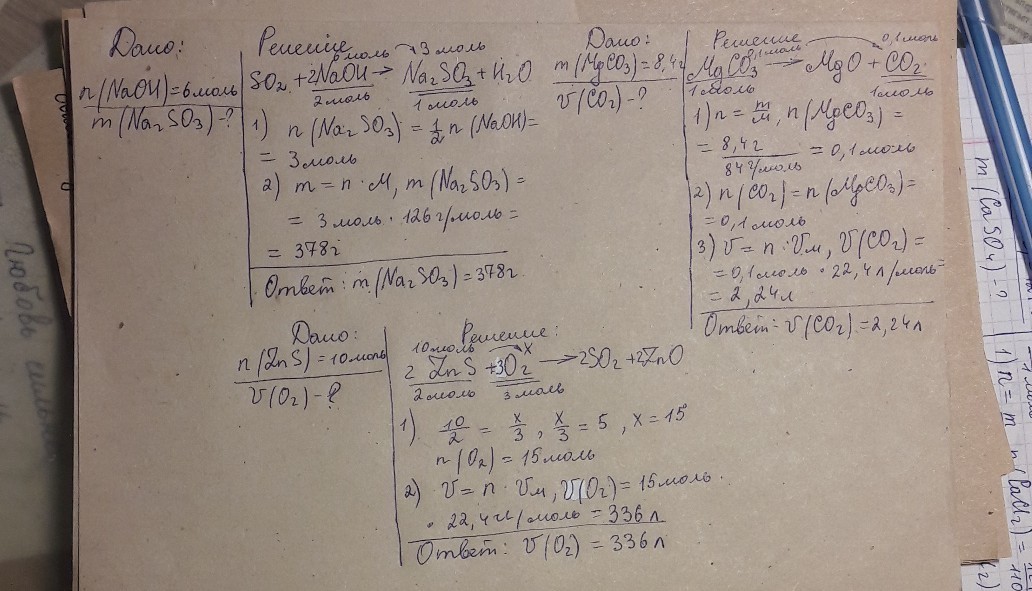 Дано:
n(NaOH)=6моль
m(Na₂SO₃)-?
Решение
6моль 3моль
SO₂ + 2NaOH → Na₂SO₃ + H₂O
2моль 1моль
1) n(Na₂SO₃) = 1/2 n(NaOH)=
= 3моль
2) m = n · M, m(Na₂SO₃) =
= 3моль · 126г/моль =
= 378г
Ответ: m(Na₂SO₃)=378г
Дано:
m(MgCO₃)=8,4г
V(CO₂)-?
Решение
0,1моль 0,1моль
MgCO₃ → MgO + CO₂
1моль 1моль
1) n = m/M, n(MgCO₃) =
= 8,4г / 84г/моль = 0,1моль
2) n(CO₂) = n(MgCO₃)=
=0,1моль
3) V = n · Vм, V(CO₂) =
=0,1моль · 22,4л/моль=
= 2,24л
Ответ: V(CO₂)=2,24л
Дано:
n(ZnS)=10моль
V(O₂)-?
Решение:
10моль x
2ZnS +3O₂ → 2SO₂ +2ZnO
2моль 3моль
1) 10/2 = x/3, x/3 = 5, x=15
n(O₂) = 15моль
2) V = n · Vм, V(O₂)=15моль ·
· 22,4л/моль = 336л
Ответ: V(O₂) = 336л
m(CaSO₄)-?
1) n = m
n(CaCl₂) =
Любовь